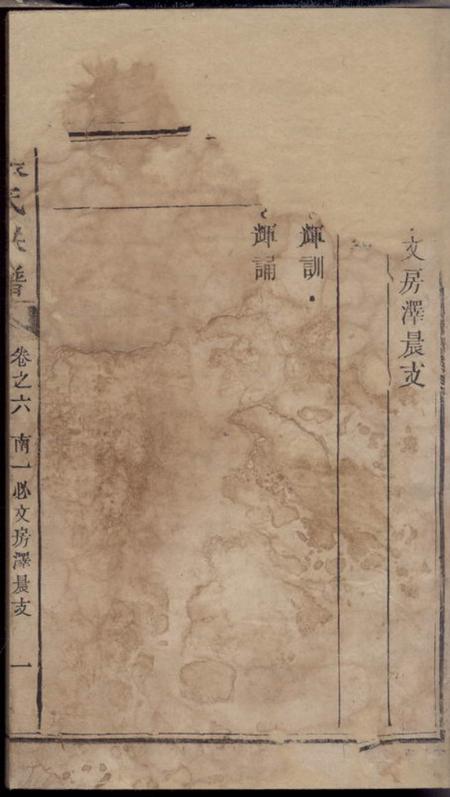 文房澤晨支
輝訓
輝誦
氏族譜
卷之六 南一必文房澤晨支 一